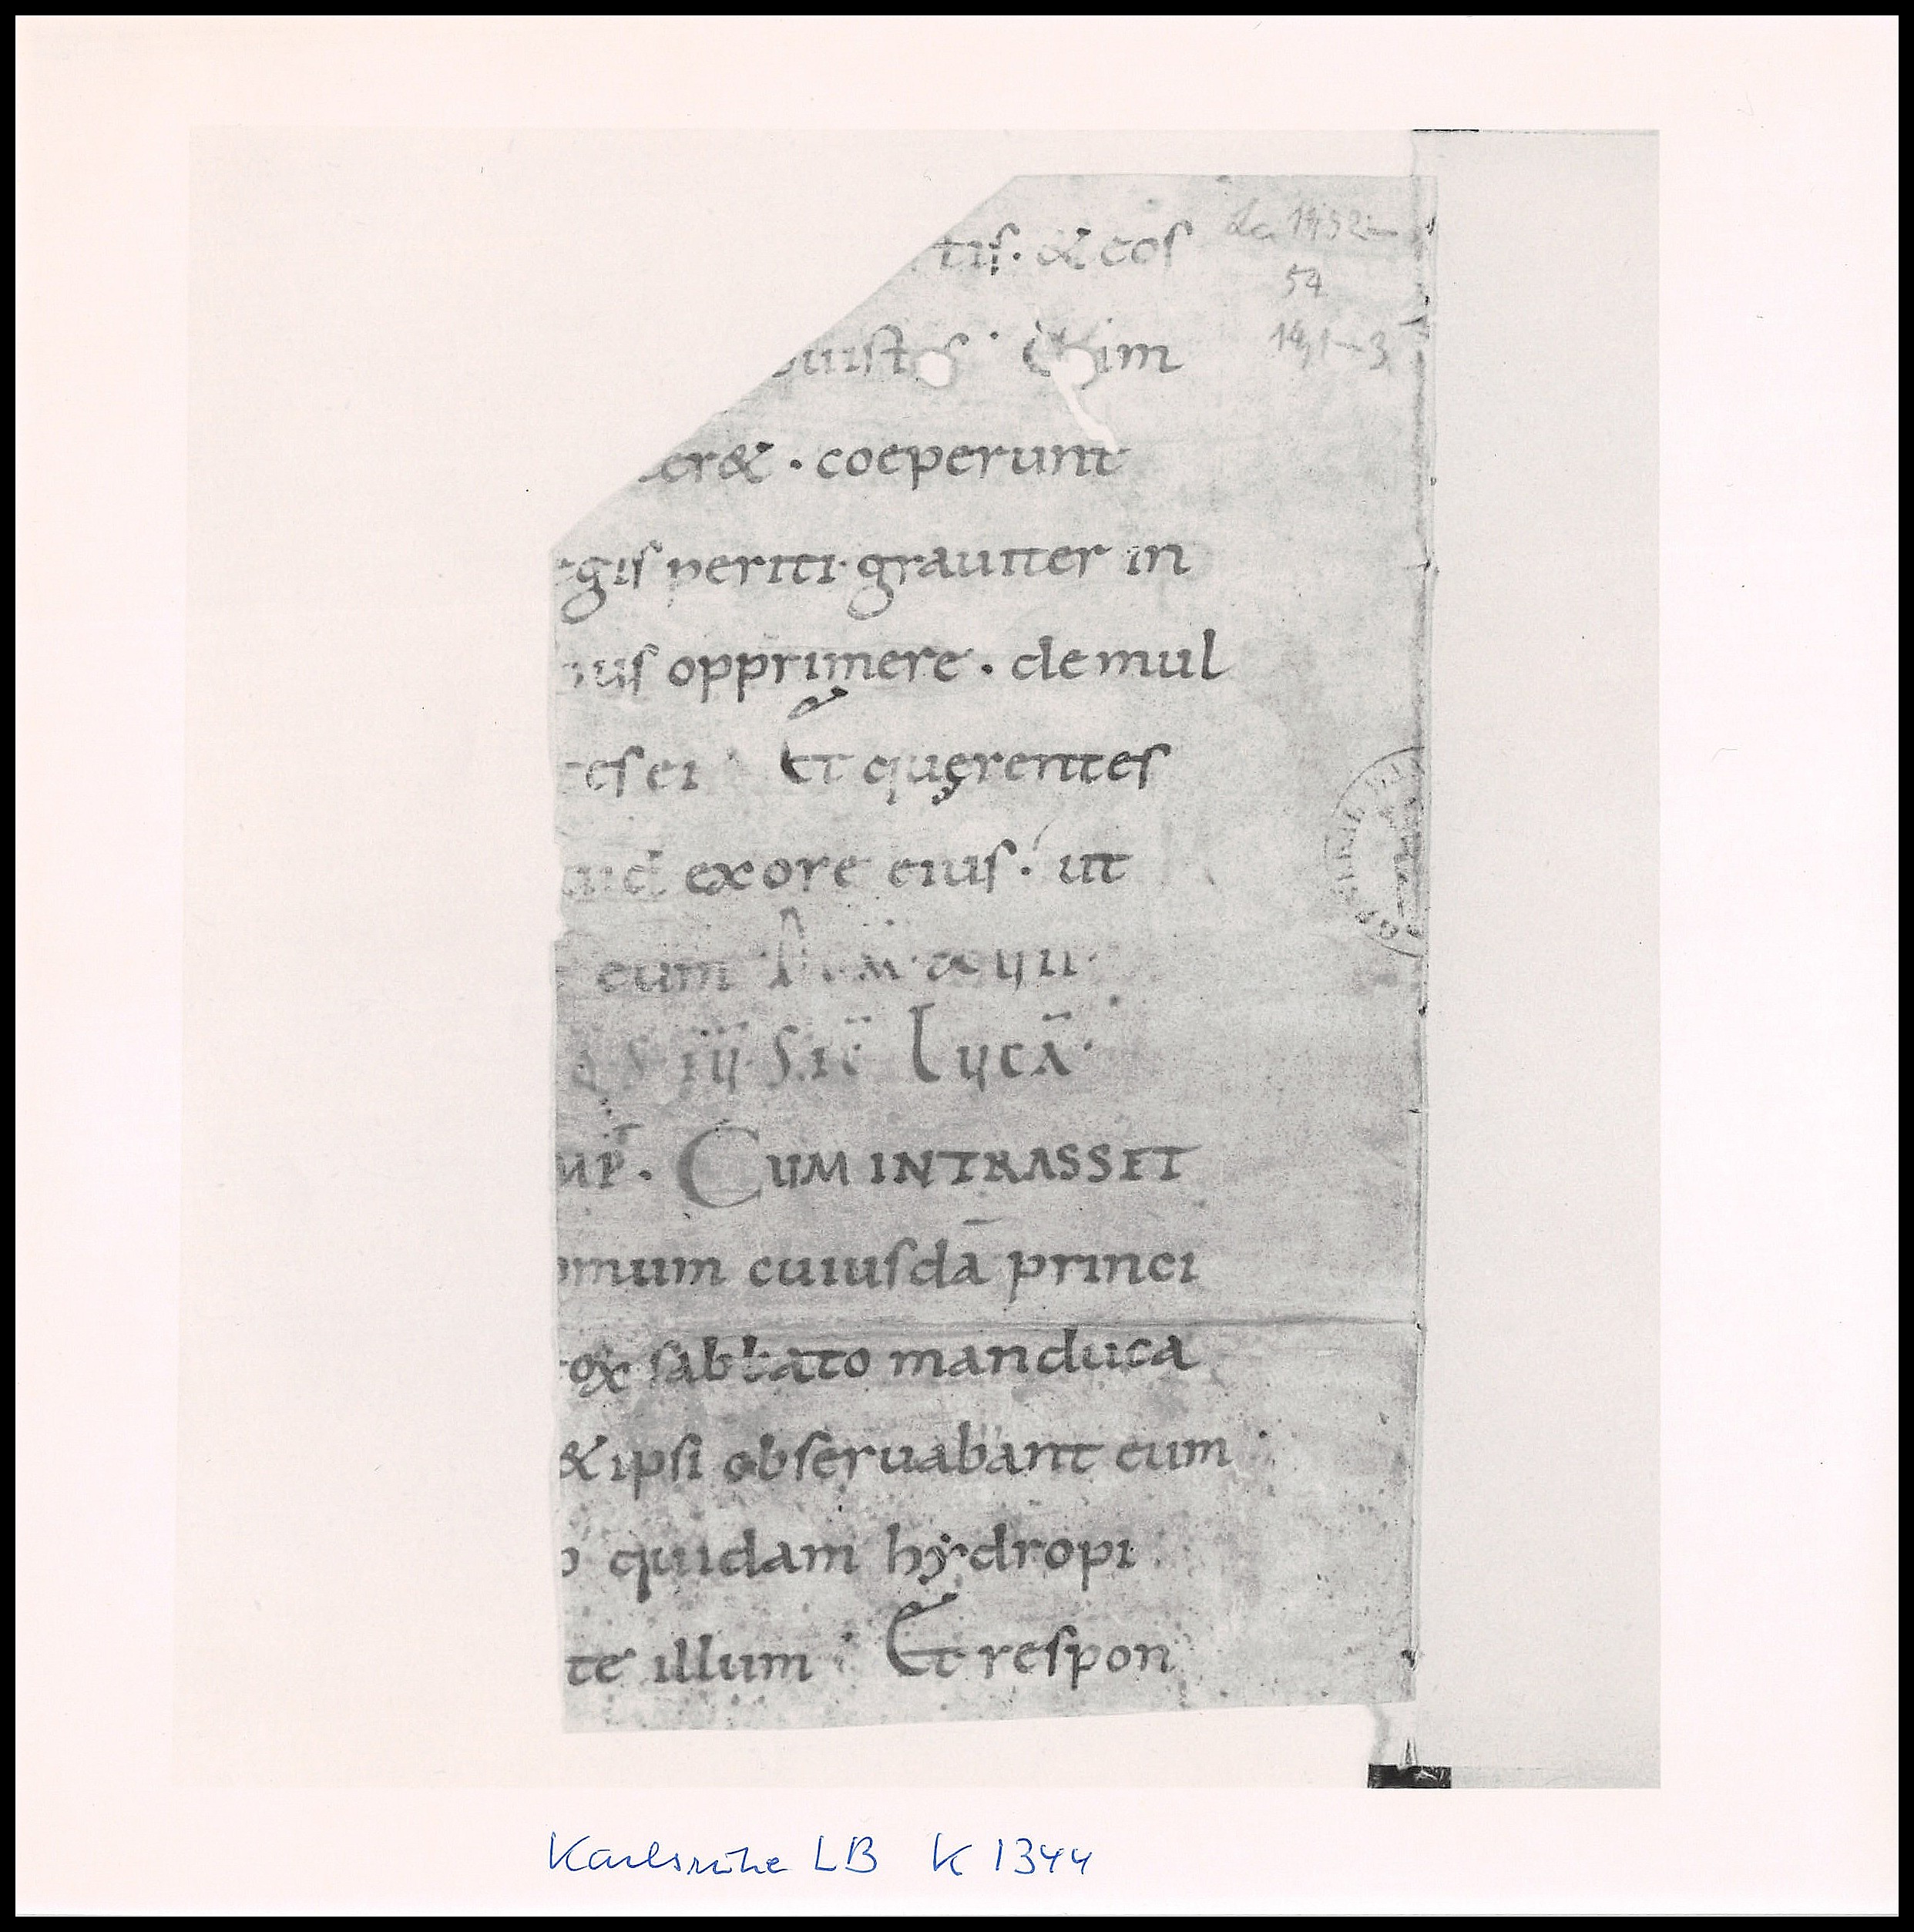 tis. & eos
uistis. Cum
er&. coeperunt
egis periti. grauiter in
ius opprimere. de mul
tes ei. Et quęrentes
uid ex ore eius. ut
eum
iii Lucā.
mp̄. CUM INTRASSET
omum cuiusdā princi
sabbato manduca
& ipsi obseruabant eum.
quidam hydropi
te illum. Et respon
54
14,1-3
Karlsruhe LB K 1344